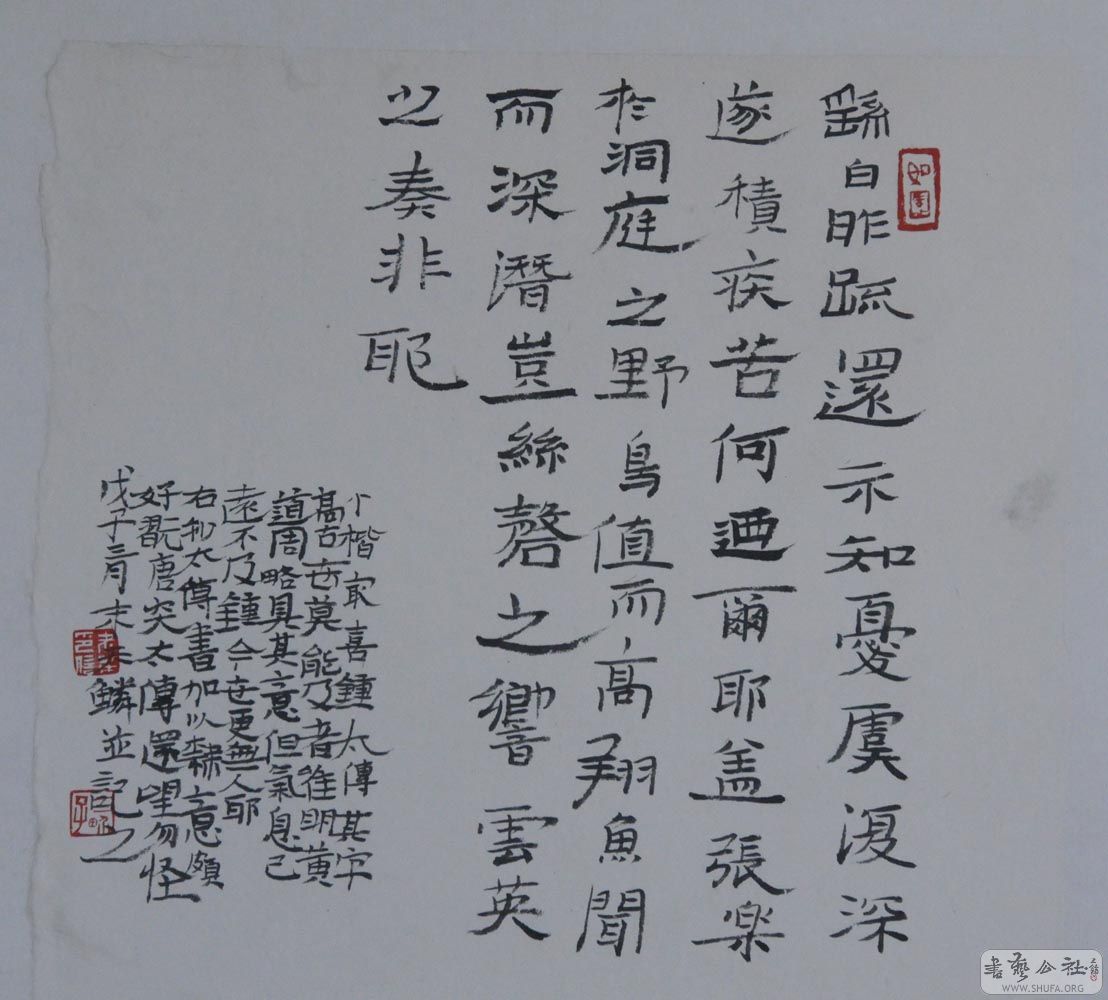 繇白昨疏還示知憂虞復深
遂積疾苦何迺爾耶蓋張樂
於洞庭之野鳥值而高翔魚聞
而深潛豈絲磬之響雲英
之奏非耶
小楷最喜鍾太傅其字
高古世莫能及者惟明黃
道周略具其意但氣息已
遠不及鍾今世更無人耶
右抄太傅書加以隸意頗
好翫唐突太傅還望勿怪
戊子三月末朱鱗並記之
書藝公社
WWW.SHUFA.ORG